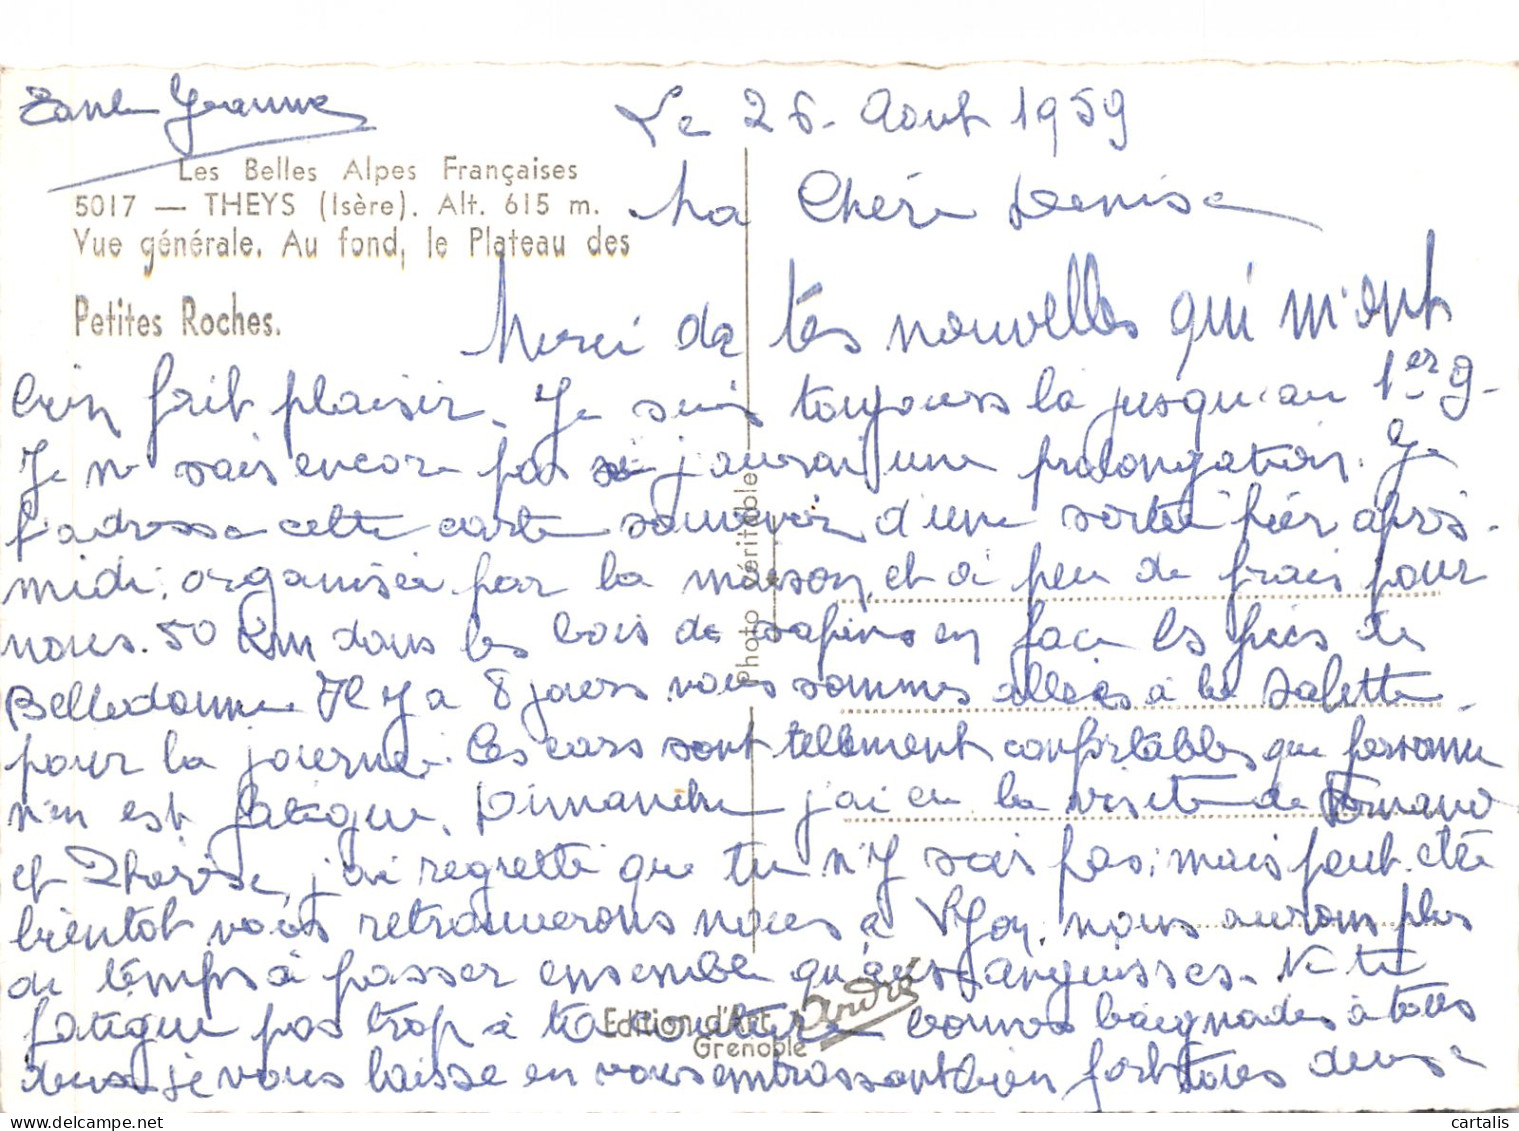 Tante Jeanne
Le 26. Aout 1959
Les Belles Alpes Françaises
5017 — THEYS (Isère). Alt. 615 m.
Vue générale. Au fond, le Plateau des
Petites Roches.
Ma Chére Denise
Merci de tes nouvelles qui m'ont
bien fait plaisir. Je suis toujours la jusqu'au 1er 9-
Je ne sais encore pas si j'aurai une prolongation. Je
t'adresse cette carte souvenir d'une sortie hier après-
midi; organisée par la maison, et à peu de frais pour
nous. 50 Km dans les bois de sapins en face les pics de
Belledonne Il y a 8 jours nous sommes allées à la Salette
pour la journée. Ces cars sont tellement confortables que personne
n'en est fatigue. Dimanche j'ai eu la visite de Fernand
et Thérèse, j'ai regretté que tu n'y sois pas; mais peut-être
bientot nous retrouverons nous à Lyon, nous aurons plus
de temps à passer ensemble qu'aux. Ne te
fatigue pas trop à ta couture bonnes baignades à toutes
deux je vous laisse en vous embrassant bien fort toutes deux
Photo véritable
Edition d'Art André
Grenoble
cartalis